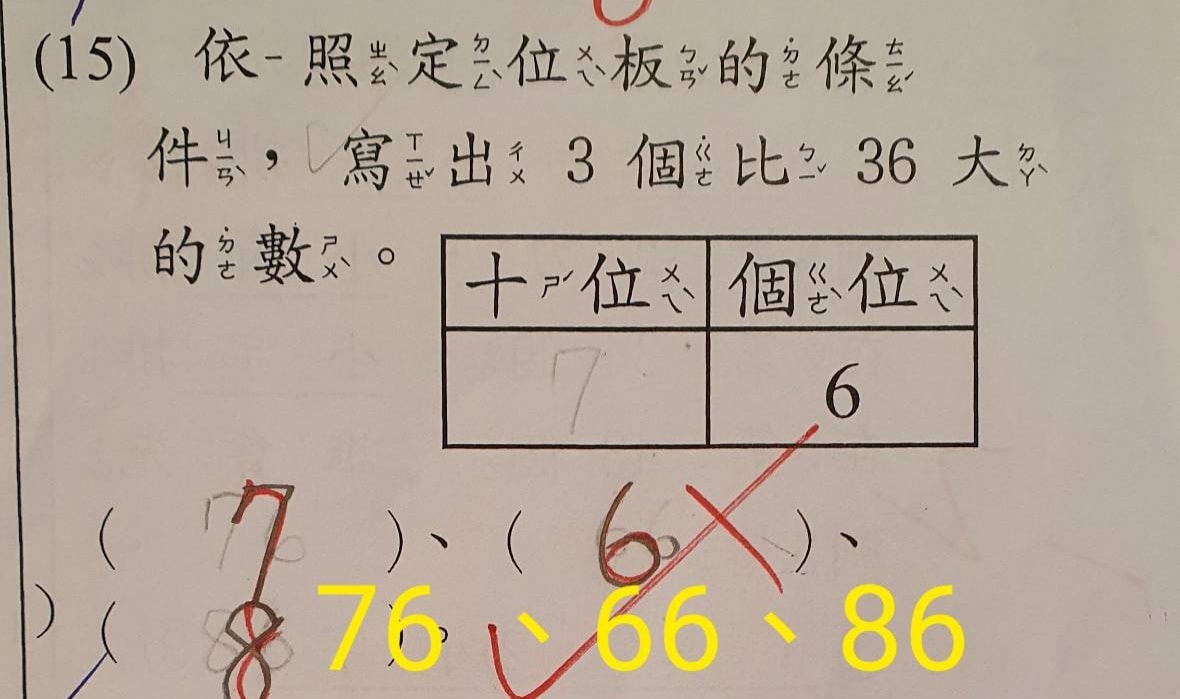 (15) 依一照ㄓㄠˋ定ㄉㄧㄥˋ位ㄨㄟˋ板ㄅㄢˇ的˙ㄉㄜ條ㄊㄧㄠˊ
件ㄐㄧㄢˋ，寫ㄒㄧㄝˇ出ㄔㄨ 3 個˙ㄍㄜ比ㄅㄧˇ 36 大ㄉㄚˋ
的˙ㄉㄜ數ㄕㄨˋ。
十ㄕˊ位ㄨㄟˋ 個ㄍㄜˋ位ㄨㄟˋ
7 6
( 7 )、( 6 )、
) ( 8 )。
76、66、86